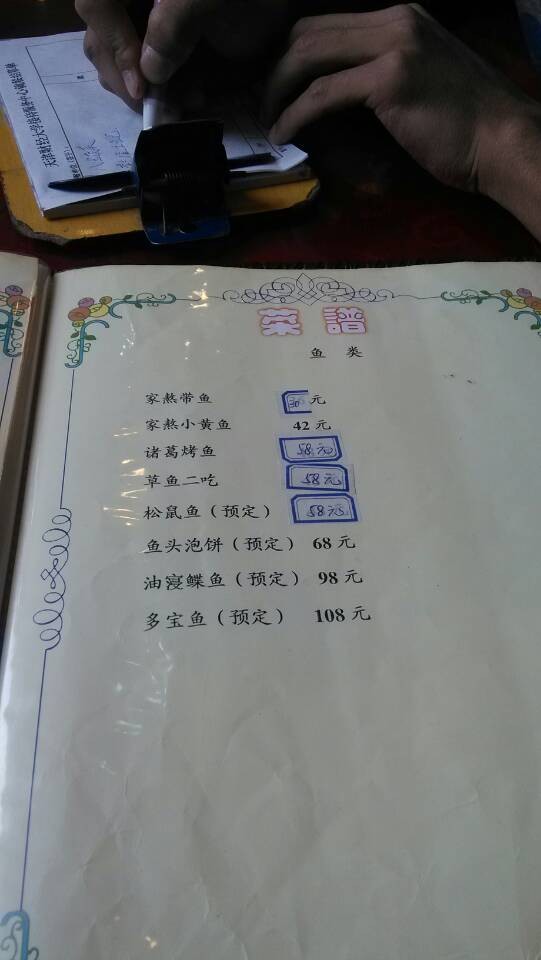 天津财经大学接待服务中心
菜谱
鱼 类
家熬带鱼 元
家熬小黄鱼 42 元
诸葛烤鱼 58元
草鱼二吃 58元
松鼠鱼（预定） 58元
鱼头泡饼（预定） 68 元
油寖鲽鱼（预定） 98 元
多宝鱼（预定） 108 元